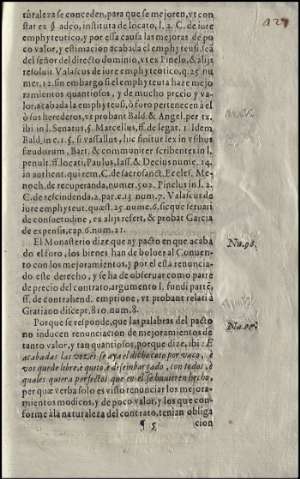 turaleza se conceden, para que se mejoren, vt con
star ex § adeo, instituta de locato, l. 2. C. de iure
emphyteotico, y por essa causa las mejoras de po
co valor, y estimacion acabada el emphyteusi seã
del señor del directo dominio, vt ex Pinelo, & alijs
resoluit Valascus de iure emphyteotico, q. 25. nu
mer. 12. sin embargo si el emphyteuta haze mejo
ramientos quantiosos, y de mucho precio y va-
lor, acabada la emphyteusi, ò foro pertenecen à el
ò sus herederos, vt probat Bald. & Angel. per tx.
ibi in l. Senatus, §. Marcellus, ff. de legat. 1. Idem
Bald. in c. 1. §. si vassallus, hic finitur lex in vsibus
feudorum, Bart. & communiter scribentes in l.
penult. ff. locati, Paulus, Iass. & Decius nume. 14.
in authent. qui rem. C. de sacrosanct. Eccles. Me-
noch. de recuperanda, numer. 502. Pinelus in l. 2.
C. de rescindenda, 2. par. c. 13. num. 7. Valascus de
iure emphyteut. quæst. 25. nume. 6. sic que seruari
de consuetudine, ex alijs refert, & probat Garcia
de expensis, cap. 6. num. 21.
El Monasterio dize que ay pacto en que acaba
do el foro, los bienes han de boluer al Conuento
con los mejoramientos, y por el està renunciado
ello de derecho, y se ha de obseruar como parte
de precio del contrato, argumento l. fundi partẽ,
ff. de contrahend. emptione, vt probant relati à
Gratiano discept. 810. num. 8.
Nu. 98.
Porque se responde, que las palabras del pacto
no inducen renunciacion de mejoramientos de
tanto valor, y tan quantiosos, porque dize, ibi: E
acabadas las vozes se aya el dicho cato por vaco, è
vos quede libre, è quito, è desembargado, con todos, è
quales quiera perfectos que en èl se huuieren hecho,
per quæ verba solo es visto renunciar los mejora-
mientos modicos, y de poco valor, y los que con-
forme à la naturaleza del contrato, tenian obliga
¶ 5 cion